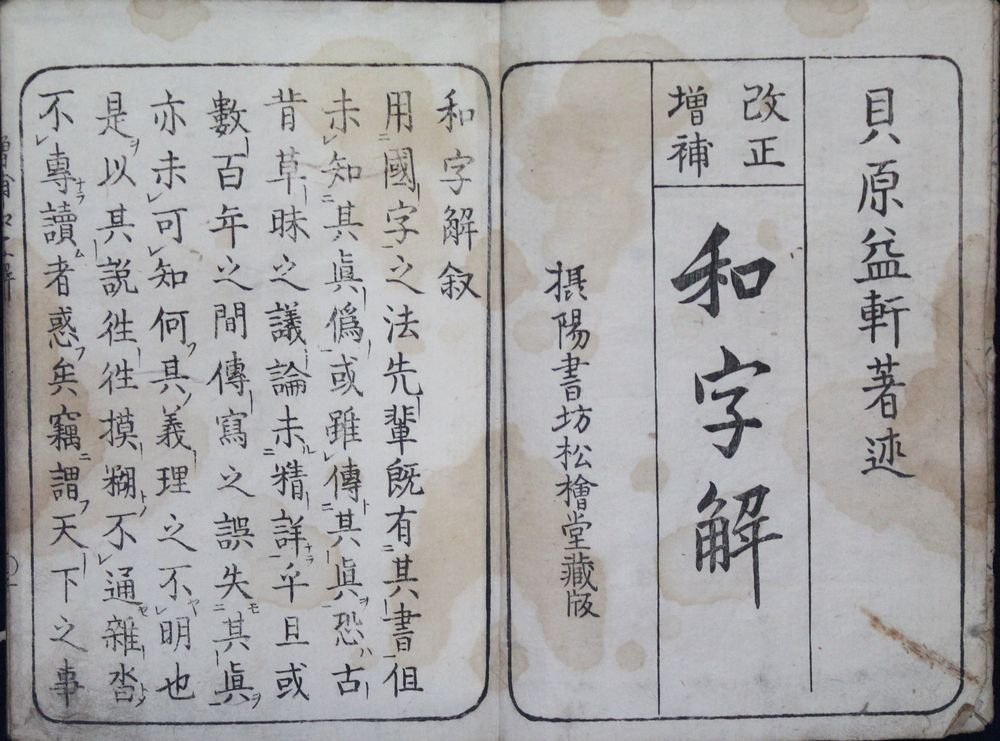 貝原益軒著述
改正
増補
和字解
摂陽書坊松檜堂藏版
和字解叙
用國字之法先輩既有其書但
未知其眞僞或雖傳其眞恐古
昔草昧之議論未精詳乎且或
數百年之間傳寫之誤失其眞
亦未可知何其義理之不明也
是以其説徃徃摸糊不通雜沓
不專讀者惑矣竊謂天下之事